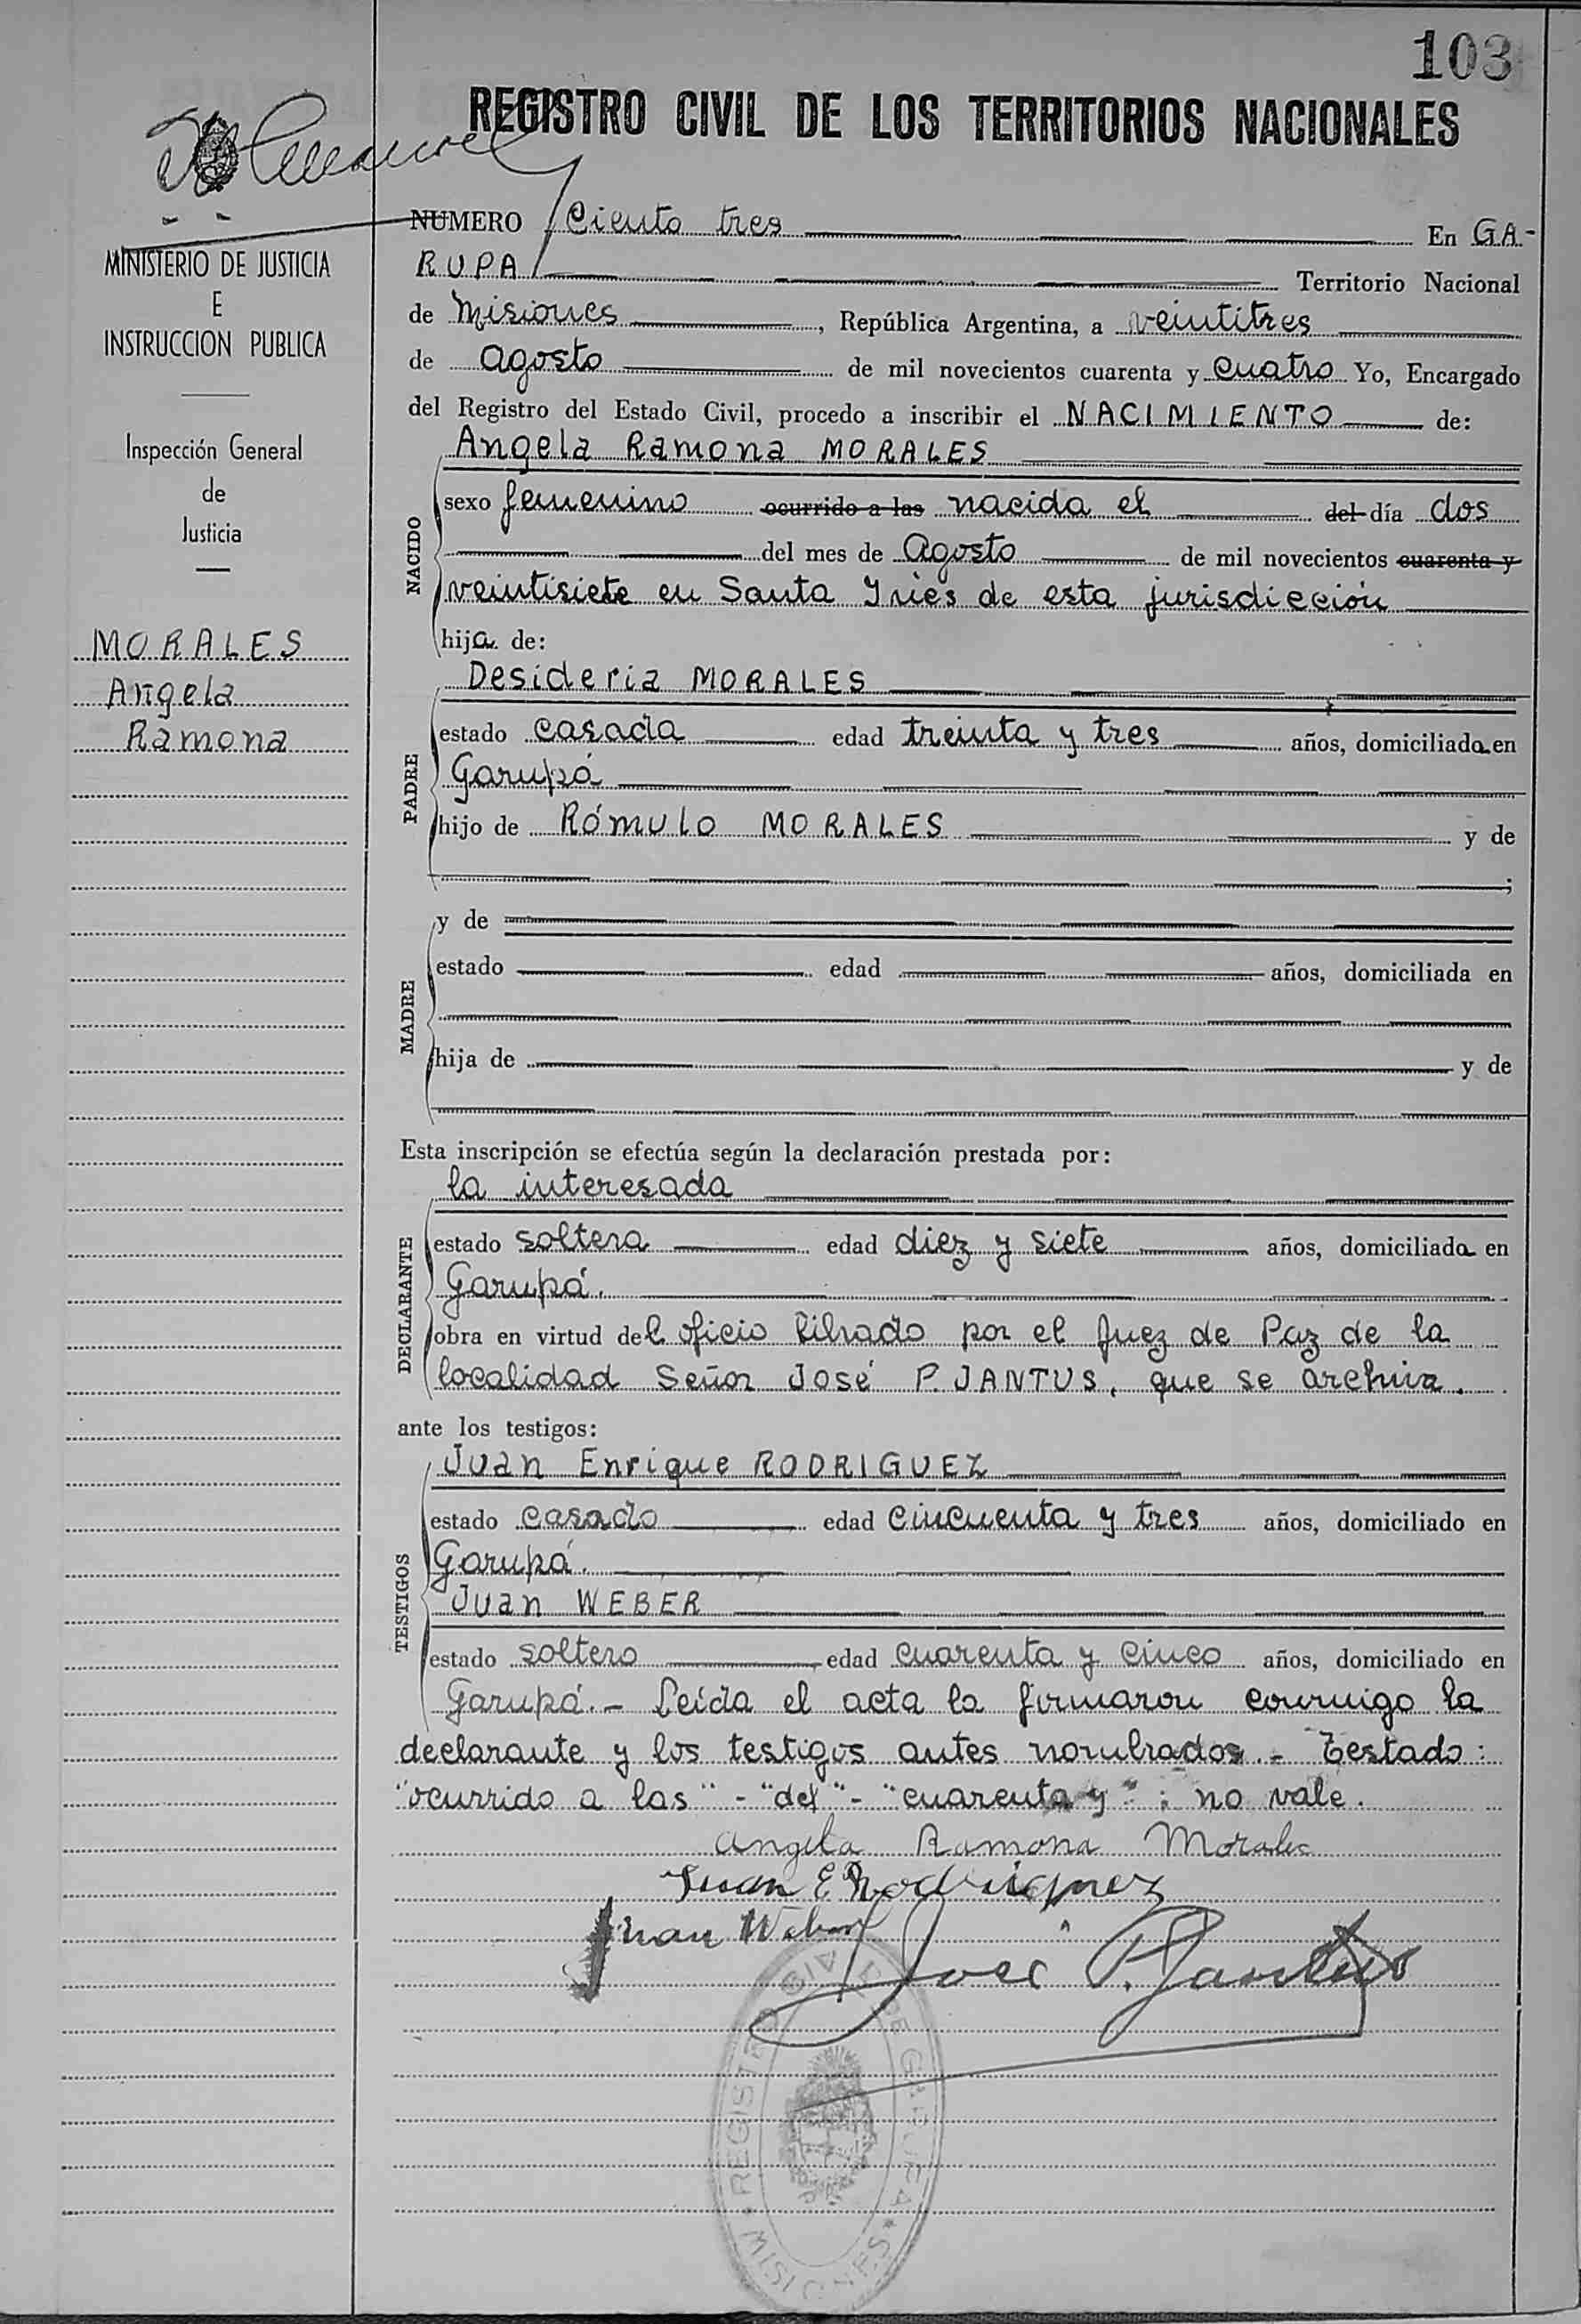 103
REGISTRO CIVIL DE LOS TERRITORIOS NACIONALES
MINISTERIO DE JUSTICIA
E
INSTRUCCION PUBLICA
Inspección General
de
Justicia
MORALES
Angela
Ramona
NUMERO Ciento tres En GA-
RUPA Territorio Nacional
de Misiones, República Argentina, a veintitres
de agosto de mil novecientos cuarenta y cuatro Yo, Encargado
del Registro del Estado Civil, procedo a inscribir el NACIMIENTO de:
Angela Ramona MORALES
NACIDO
sexo femenino ocurrido a las nacida el del día dos
del mes de Agosto de mil novecientos cuarenta y
veintisiete en Santa Ynés de esta jurisdicción
hija de:
Desideria MORALES
PADRE
estado casada edad treinta y tres años, domiciliada en
Garupá
hijo de Rómulo MORALES y de
;
MADRE
y de
estado edad años, domiciliada en
hija de y de
Esta inscripción se efectúa según la declaración prestada por:
la interesada
DECLARANTE
estado soltera edad diez y siete años, domiciliada en
Garupá.
obra en virtud del oficio librado por el Juez de Paz de la
localidad Señor José P. JANTUS, que se archiva.
ante los testigos:
Juan Enrique RODRIGUEZ
TESTIGOS
estado casado edad cincuenta y tres años, domiciliado en
Garupá.
Juan WEBER
estado soltero edad cuarenta y cinco años, domiciliado en
Garupá.- Leída el acta la firmaron conmigo la
declarante y los testigos antes nombrados.- Testado:
"ocurrido a las" - "del" - "cuarenta y": no vale.
Angela Ramona Morales
Juan E Rodriguez
Juan Weber
José P. Jantus
REGISTRO CIVIL DE GARUPA * MISIONES *